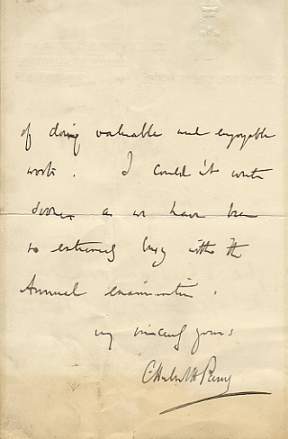 of doing valuable and enjoyable
work. I could n't write
sooner as we have been
so extremely busy with the
Annual examination.
very sincerely yours
C Hubert H Parry